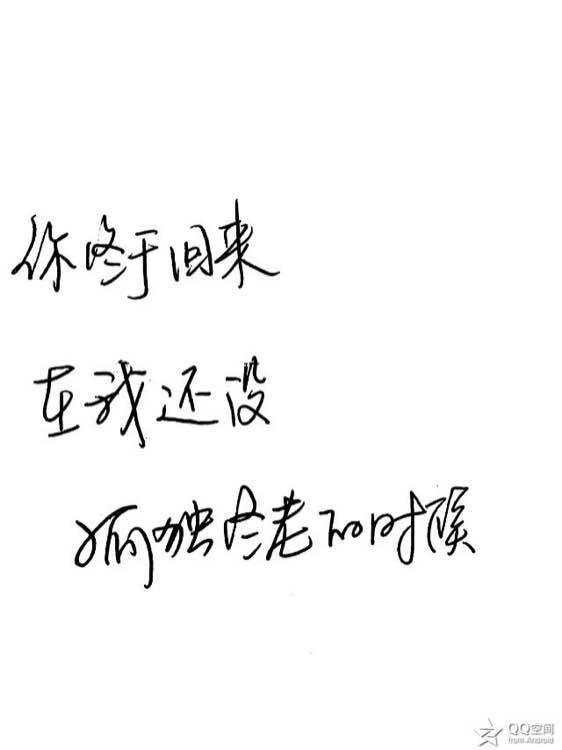 你终于回来
在我还没
孤独终老的时候
QQ空间
from Android